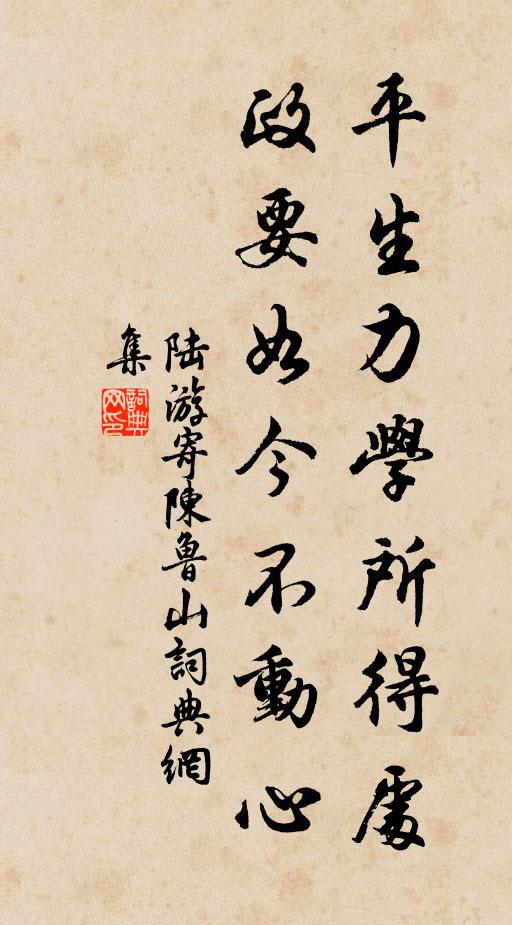 平生力學所得處
政要如今不動心
陸游寄陳魯山詞典網
集
詞典
网印